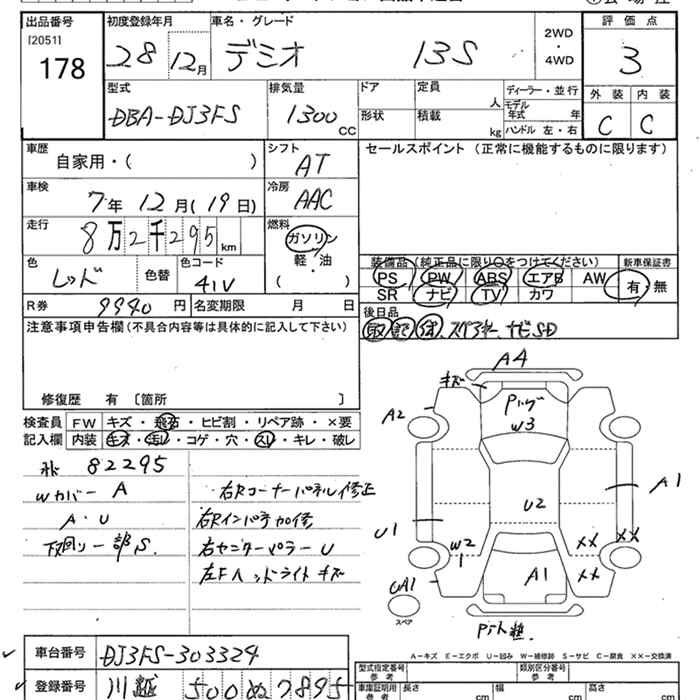 出品番号 初度登録年月 車名・グレード 評価点
[2051]
178
28 12月 デミオ 13S
2WD・4WD
3
型式 排気量 ドア 定員 ディーラー・並行 外装 内装
DBA-DJ3FS 1300CC
形状 積載 人 kg
モデル年式 年
ハンドル 左・右
C C
車歴 シフト セールスポイント (正常に機能するものに限ります)
自家用・( ) AT
車検 冷房
7年 12月(19日) AAC
走行 燃料
8万2千295km ガソリン
軽・油
( )
色 色替 色コード
レッド 41V
装備品(純正品に限り○をつけてください) 新車保証書
PS PW ABS エアB AW 有・無
SR ナビ TV カワ
R券 9940円 名変期限 月 日
後日品
注意事項申告欄(不具合内容等は具体的に記入して下さい)
修復歴 有 〔箇所 〕
検査員記入欄 FW キズ・飛石・ヒビ割・リペア跡・×要
内装 キズ・汚レ・コゲ・穴・スレ・キレ・破レ
82295
Wカバー A
A・U
下回り一部S.
右Rコーナーパネル修正
右Rインパネ加修
右センターピラー U
左Fヘッドライトキズ
A4
キズ
A2
W3
A1
U2
U1
W2
1
×× ××
××
A1
スペア
A-キズ E-エクボ U-凹み W-補修跡 S-サビ C-腐食 ××-交換済
車台番号 DJ3FS-303324
登録番号 川越 500 ぬ 7895
型式指定番号 参考 類別区分番号 参考
車庫証明用 参考 長さ cm 幅 cm 高さ cm